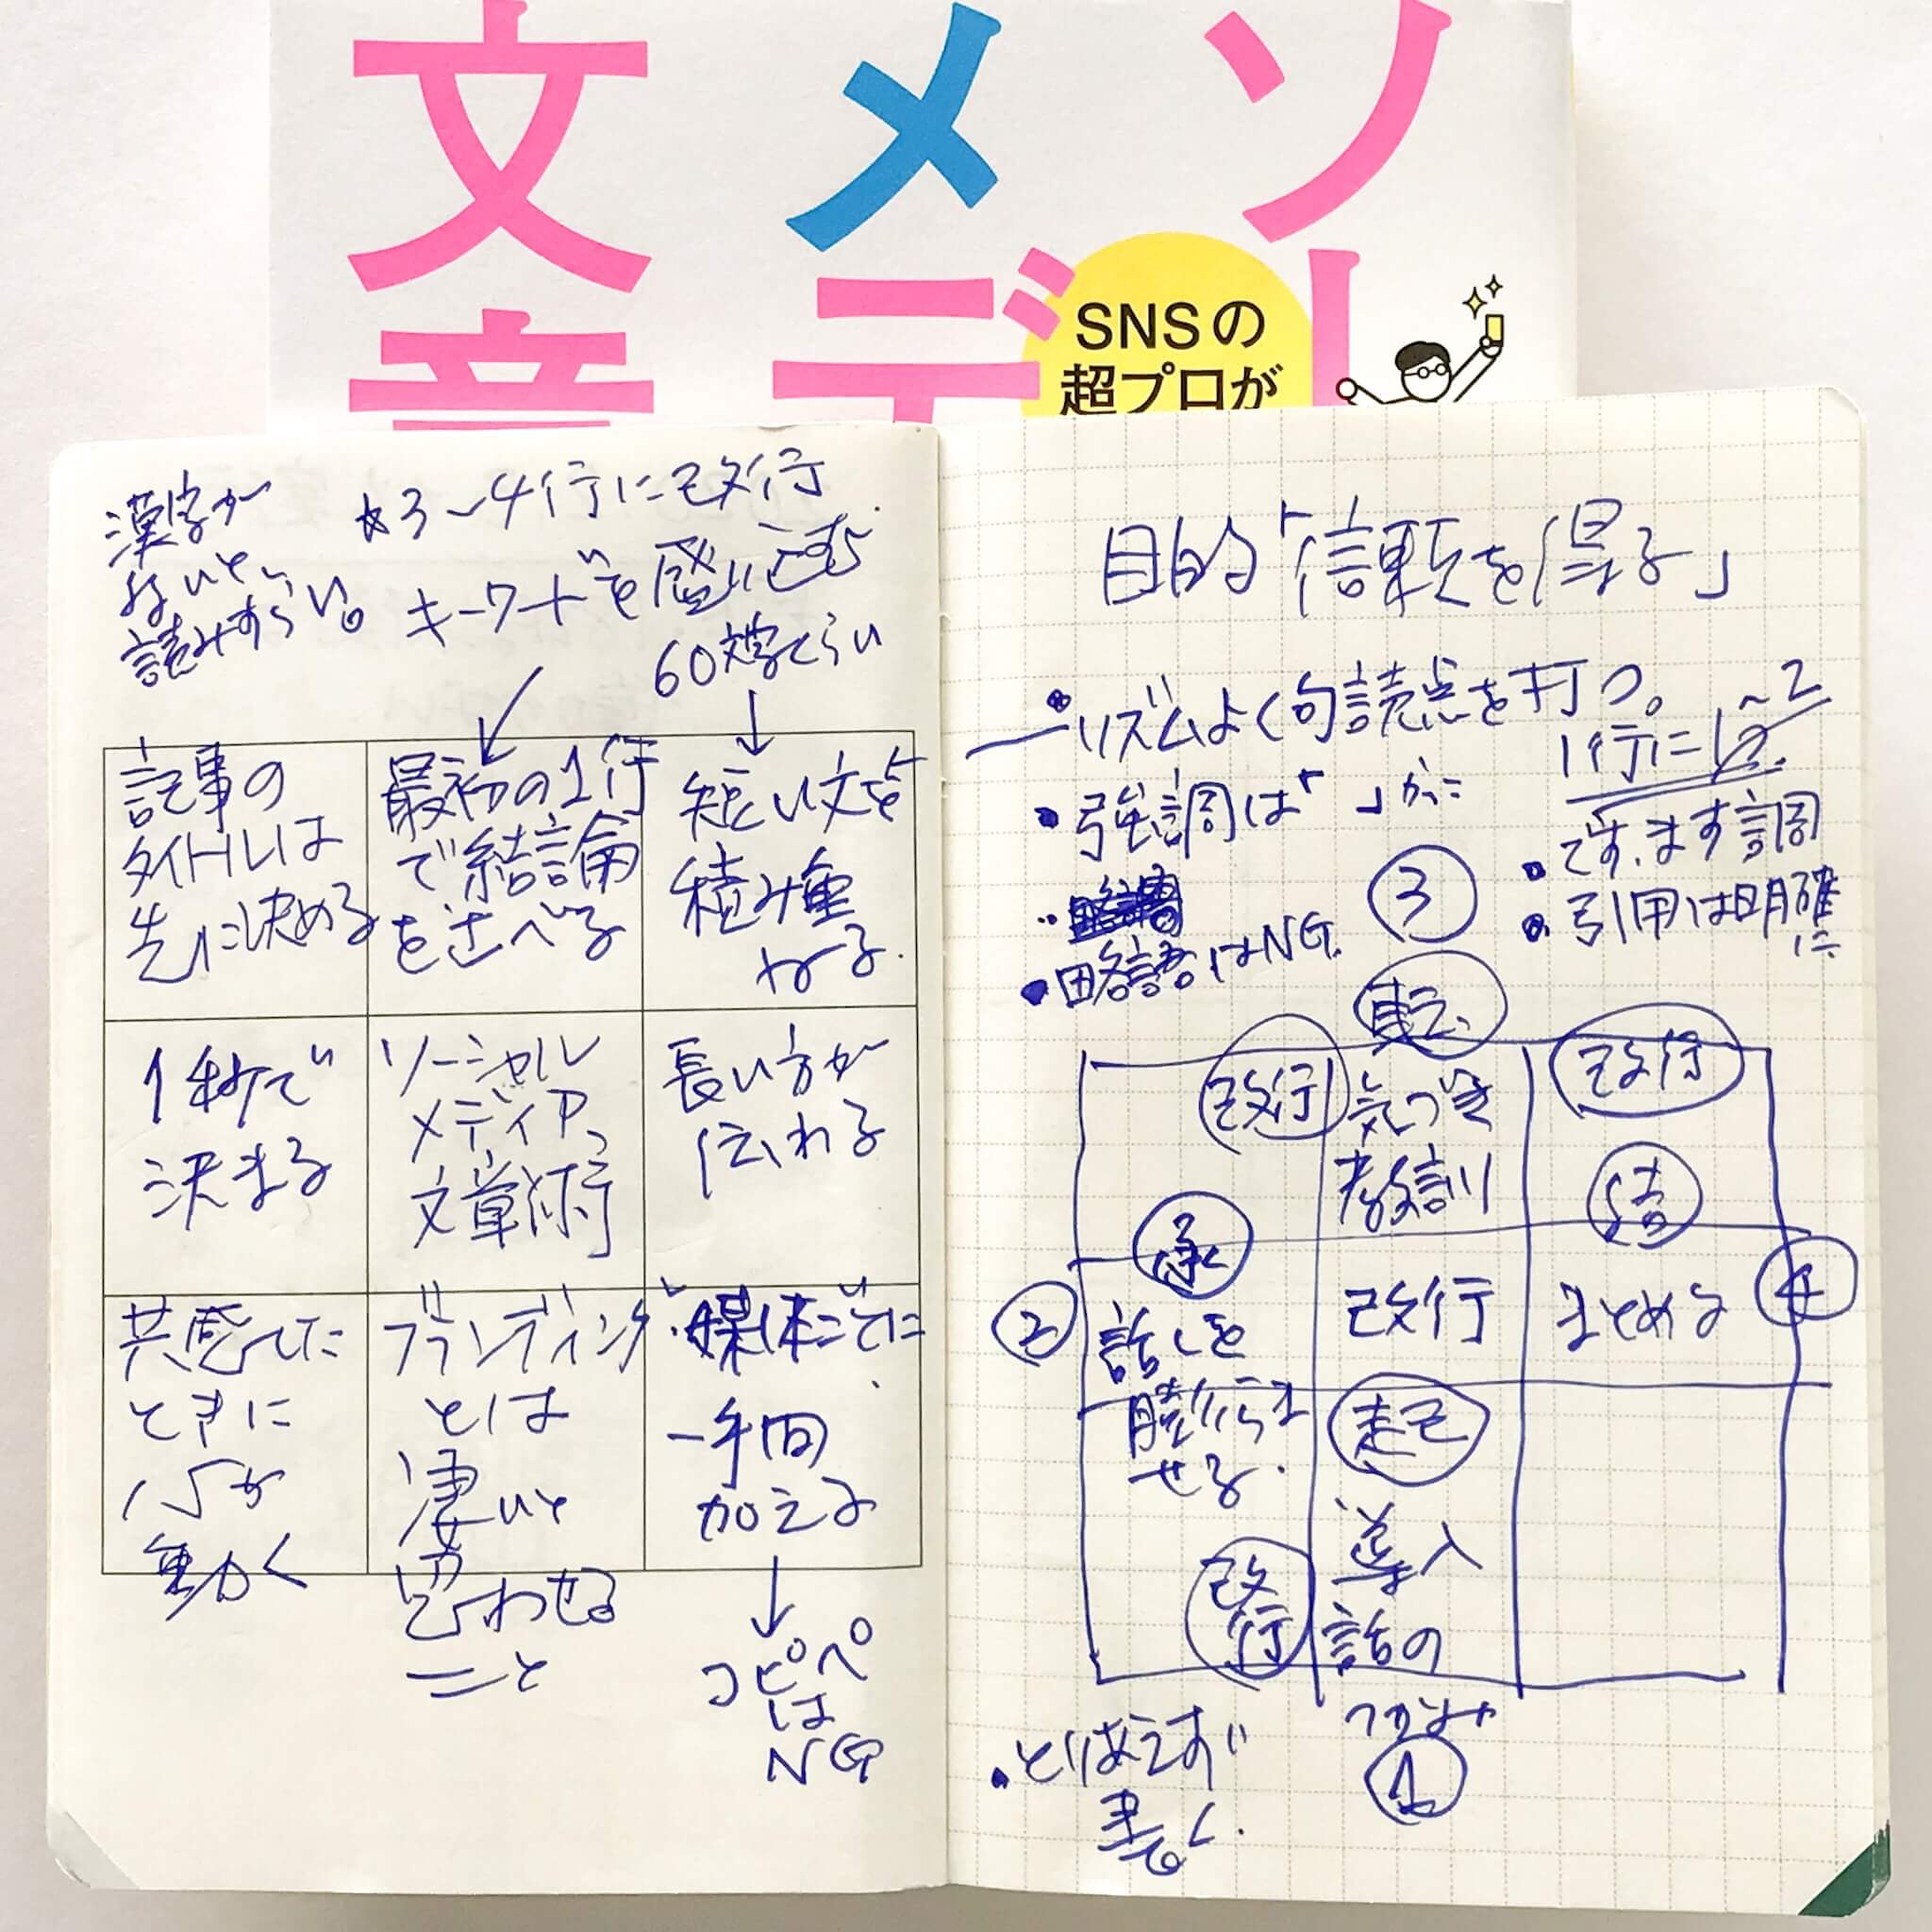 ソー
メデ
文章
SNSの
超プロが
漢字が
ないと
読みずらい。
★3〜4行に改行
キーワードを盛り込む
60文字くらい
記事の
タイトルは
先に決める
最初の1行
で結論
を述べる
短い文を
積み重
ねる.
1秒で
決まる
ソーシャル
メディア
文章術
長い方が
伝わる
共感した
ときに
心が
動く
ブランディング
とは
凄いと
思わせる
こと
媒体ごとに
一手間
加える
コピペ
は
NG
目的「信頼を得る」
・リズムよく句読点を打つ。
1行に1〜2
・強調は「 」かこ
・略語はNG.
・です.ます調
・引用は明確
に
③
転
改行
気づき
教訓
改行
結
承
②
話しを
膨らま
せる.
改行
まとめる
④
起
導入
話の
改
行
つかみ
①
・とりあえず
書く.